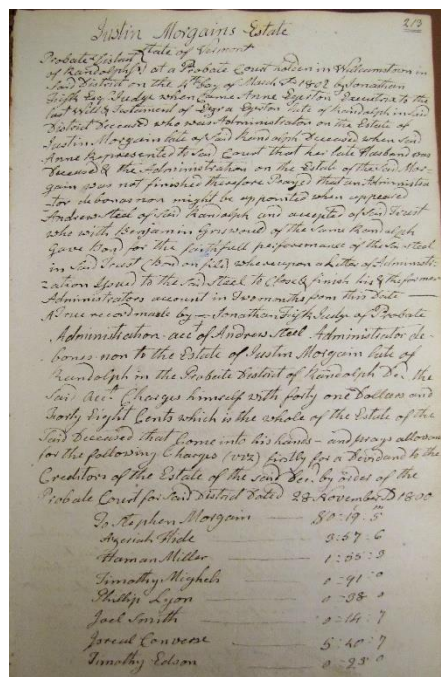 213
Justin Morgains Estate
Probate District } State of Vermont
of Randolph ss } at a Probate Court holden in Williamstown in
Said District on the 4th Day of March AD 1802 by Jonathan
Fisk Esq Judge when Came Anne Epston Executrix to the
Last Will & Testament of Ezra Epston Late of Randolph in Said
District Deceased who was Administrator on the Estate of
Justin Morgain late of Said Randolph Deceased when Said
Anne Represented to Said Court that her late Husband was
Deceased & the Administration on the Estate of the Said Mor-
gain was not finished therefore Prayed that an Administra
tor debonas non might be appointed when appeared
Andrew Steel of Said Randolph and accepted of Said Trust
who with Benjamin Griswould of the Same Randolph
Gave Bond for the faithfull performance of the Sd Steel
in Said Trust (Bond on file) whereupon a Letter of Administ-
ration Issued to the Said Steel to Close & finish his & the former
Administrators account in two months from this Date
A True record made by — Jonathan Fisk Judge of Probate
Administration acct of Andrew Steel Administrator de-
bones-non to the Estate of Justin Morgain late of
Randolph in the Probate District of Randolph Decd the
Said Acct Charges himself with forty one Dollars and
Forty Eight Cents which is the whole of the Estate of the
Said Deceased that Come into his hands - and prays allowance
for the following Charges (viz) firstly for a Devidend to the
Creditors of the Estate of the said Decd by order of the
Probate Court for Said District Dated 28 November AD 1800
To Stephen Morgain — $0-19-5
Azeriah Hide 3=57=6
Haman Miller — 1=55=3
Timothy Mighels 0-91=0
Phillip Lyon 0=38 0
Joel Smith 0=14=7
Isreal Converse 5=40=7
Timothy Edson 0-93 0